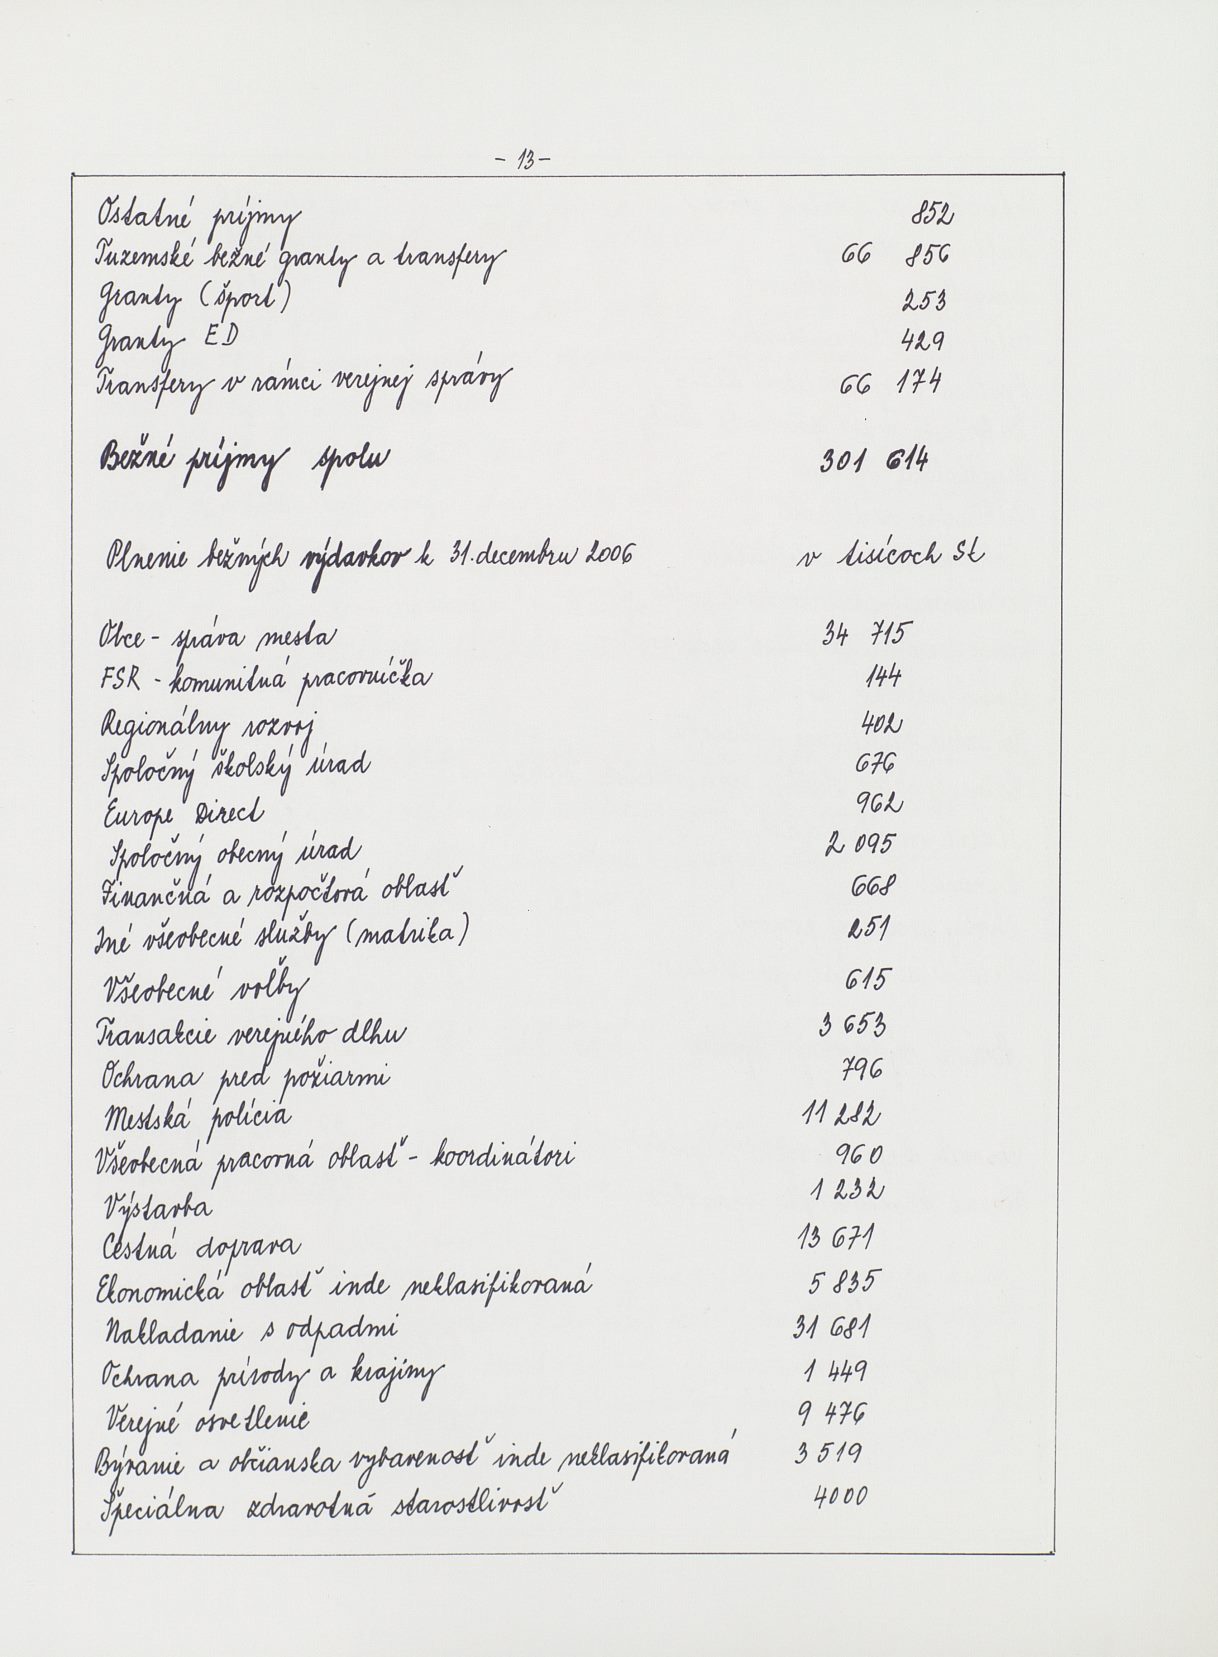 - 13 -
Ostatné príjmy 852
Tuzemské bežné granty a transfery 66 856
Granty (šport) 253
Granty ED 429
Transfery v rámci verejnej správy 66 174
Bežné príjmy spolu 301 614
Plnenie bežných výdavkov k 31. decembru 2006 v tisícoch Sk
Obce - správa mesta 34 715
FSR - komunitná pracovníčka 144
Regionálny rozvoj 402
Spoločný školský úrad 676
Europe Direct 962
Spoločný obecný úrad 2 095
Finančná a rozpočtová oblasť 668
Iné všeobecné služby (matrika) 251
Všeobecné voľby 615
Transakcie verejného dlhu 3 653
Ochrana pred požiarmi 796
Mestská polícia 11 282
Všeobecná pracovná oblasť - koordinátori 960
Výstavba 1 232
Cestná doprava 13 671
Ekonomická oblasť inde neklasifikovaná 5 835
Nakladanie s odpadmi 31 681
Ochrana prírody a krajiny 1 449
Verejné osvetlenie 9 476
Bývanie a občianska vybavenosť inde neklasifikovaná 3 519
Špeciálna zdravotná starostlivosť 4000